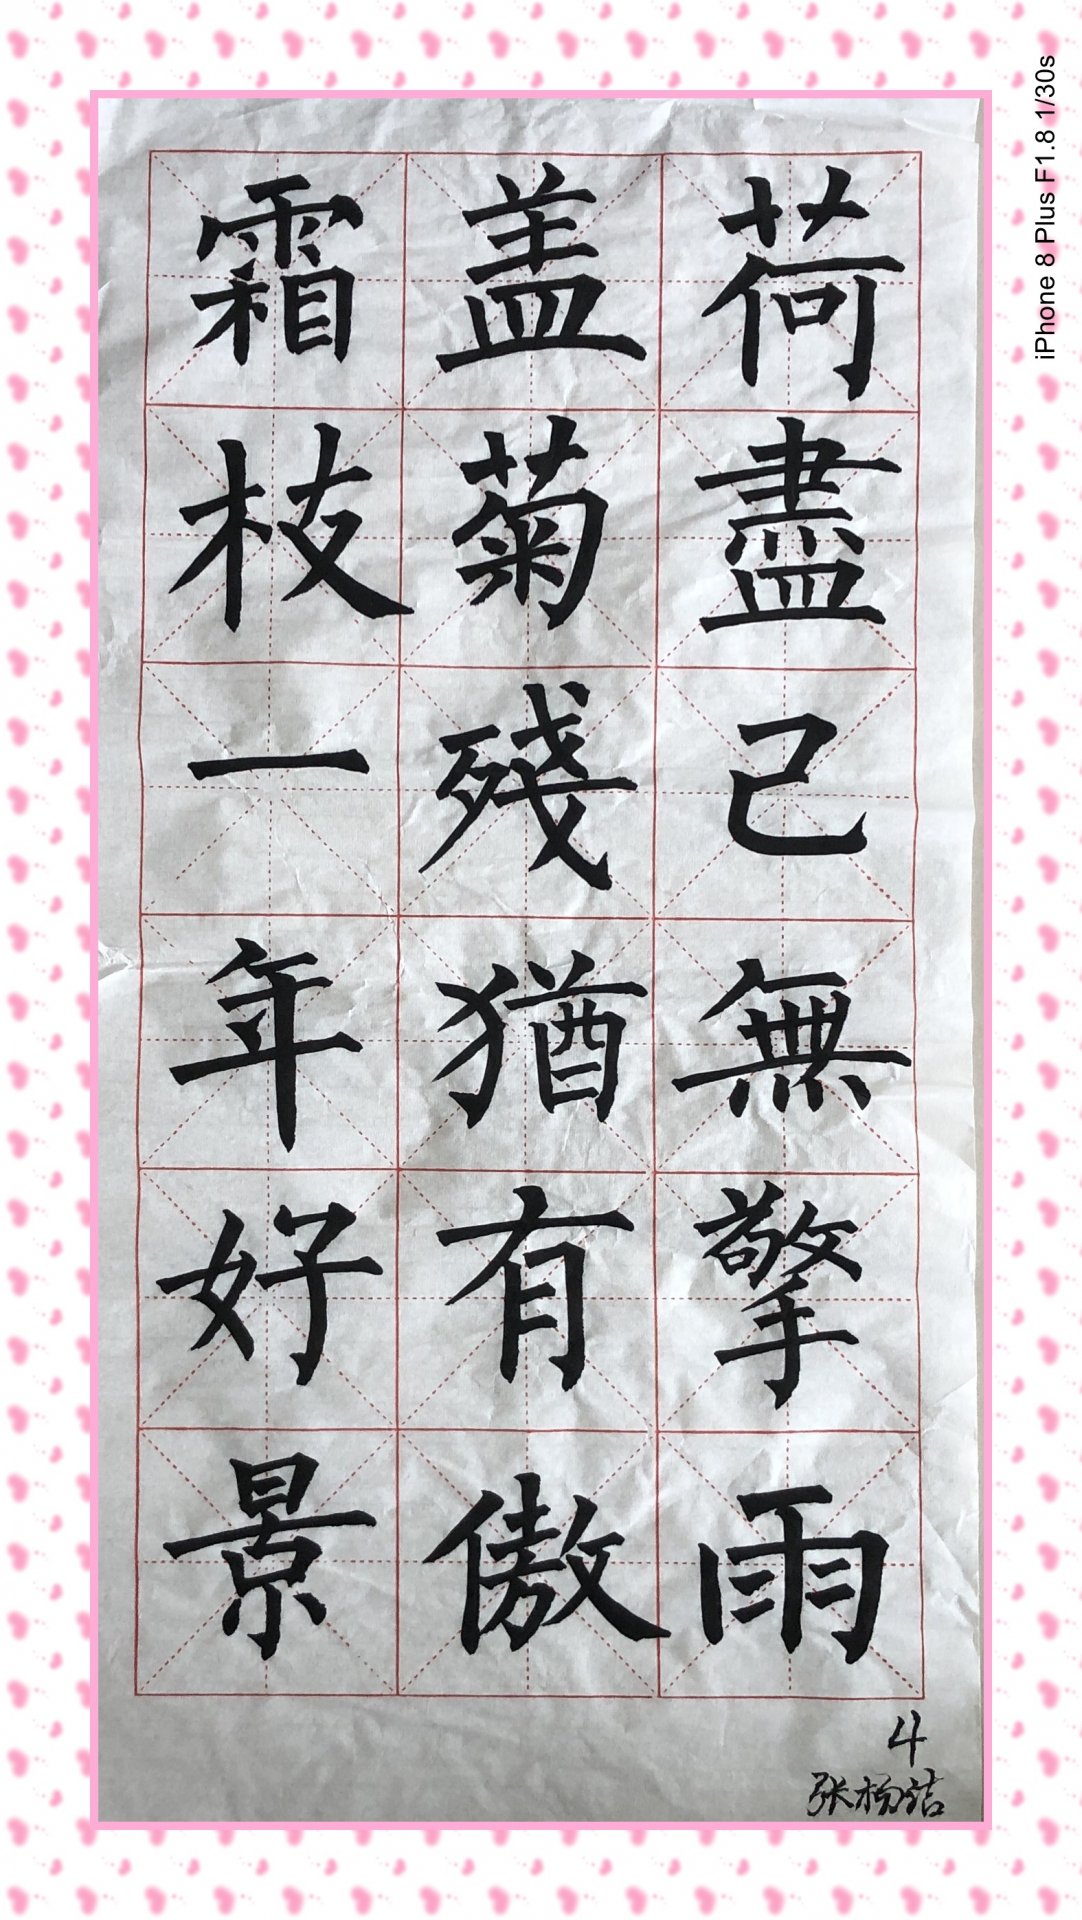 荷盡已無擎雨
盖菊殘猶有傲
霜枝一年好景
4
张杨洁
iPhone 8 Plus F1.8 1/30s